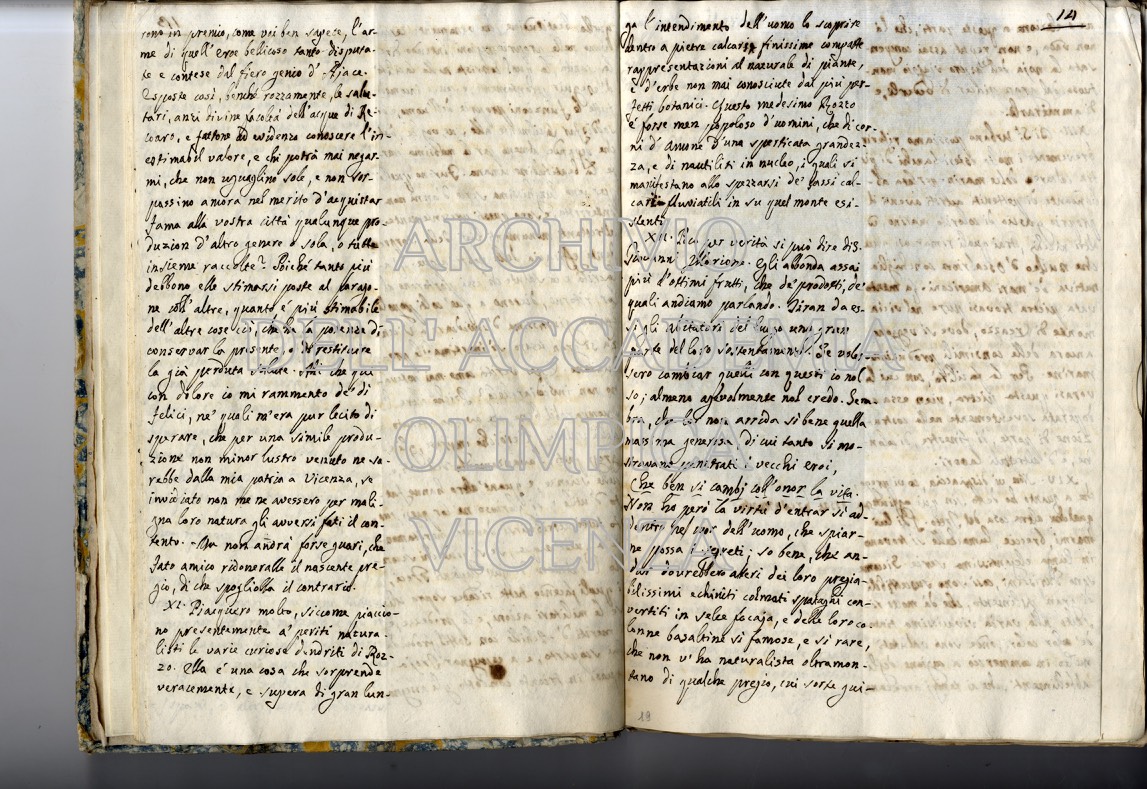 rono in premio, come voi ben sapete, l'ar-
me di quell'eroe bellicoso tanto disputa-
te e contese dal fiero genio d'Ajace.
Esposte così, benché rozzamente, le salu-
tari, anzi divine facoltà dell'acque di Re-
coaro, e fattone ad evidenza conoscere l'in-
estimabil valore, e chi potrà mai negar-
mi, che non uguaglino sole, e non sor-
passino ancora nel merito d'acquistar
fama alla vostra città qualunque pro-
duzion d'altro genere o sola, o tutte
insieme raccolte? Poiché tanto più
debbono elle stimarsi poste al parago-
ne coll'altre, quanto è più stimabile
dell'altre cose ciò, che ha la potenza di
conservar la presente, o di restituire
la già perduta salute. Ahi che qui
con dolore io mi rammento de' dì
felici, ne' quali m'era pur lecito di
sperare, che per una simile produ-
zione non minor lustro venuto ne sa-
rebbe dalla mia patria a Vicenza, se
invidiato non me ne avessero per mali-
gna loro natura gli avversi fati il con-
tento. Ma non andrà forse guari, che
fato amico ridoneralle il nascente pre-
gio, di che spogliolla il contrario.
XI. Piacquero molto, siccome piaccio-
no presentemente a' periti natura-
listi le varie curiose dendriti di Roz-
zo. Ella è una cosa che sorprende
veracemente, e supera di gran lun-
14
ga l'intendimento dell'uomo lo scoprire
dentro a pietre calcarie finissime compatte
rappresentazioni al naturale di piante,
e d'erbe non mai conosciute dai più per-
fetti botanici. Questo medesimo Rozzo
è forse men popoloso d'uomini, che di cor-
ni d'Amone d'una sperticata grandez-
za, e di nautiliti in nucleo, i quali si
manifestano allo spezzarsi de' sassi cal-
carei fluviatili in su quel monte esi-
stenti.
XII. Poco per verità si può dire di S.
Giovanni Ilarione. Egli abbonda assai
più d'ottimi frutti, che de' prodotti, de'
quali andiamo parlando. Tiran da es-
si gli abitatori del luogo una gran
parte del loro sostentamento. Se voles-
sero cambiar quelli con questi io nol
so; almeno agevolmente nol credo. Sem-
bra, che lor non arrida sì bene quella
massima generosa di cui tanto si mo-
stravano penetrati i vecchi eroi,
Che ben si cambj coll'onor la vita.
Non ho però la virtù d'entrar sì ad-
dentro ne' cuor dell'uomo, che spiar-
ne possa i segreti; so bene, che an-
dar dovrebbero alteri dei loro pregia-
bilissimi echiniti colmati spatagni con-
vertiti in selce focaja, e delle loro co-
lonne basaltine sì famose, e sì rare,
che non v'ha naturalista oltramon-
tano di qualche pregio, cui sorte gui-
19
ARCHIVIO
DELL'ACCADEMIA
OLIMPICA
VICENZA